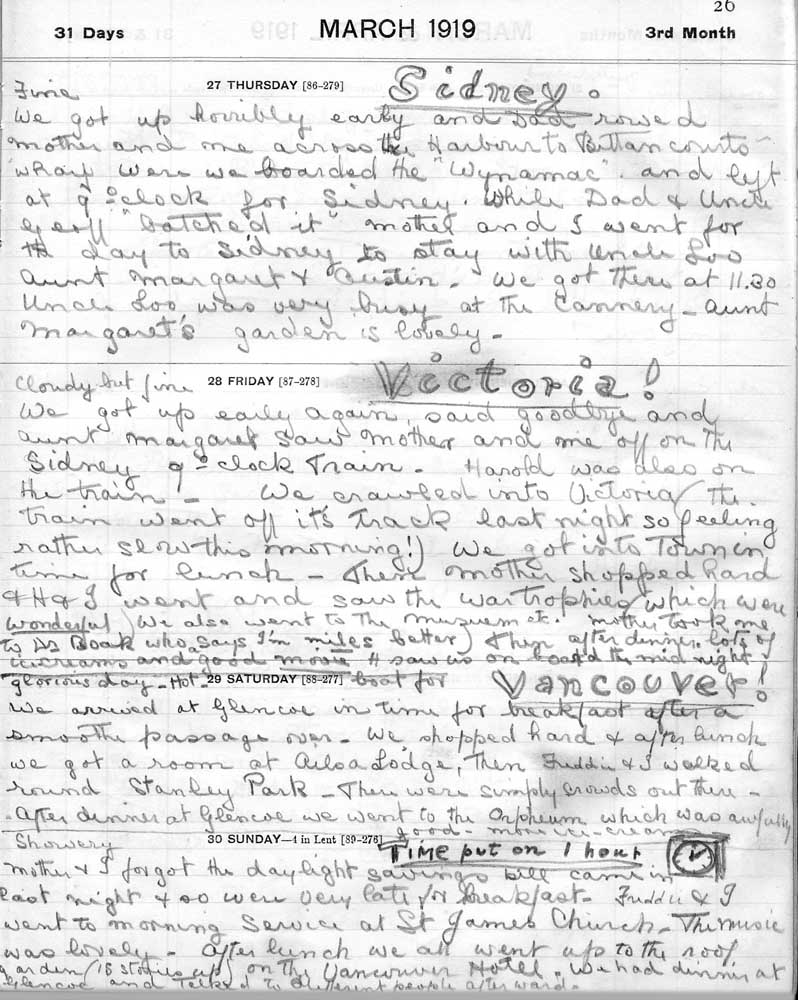 26
31 Days MARCH 1919 3rd Month
Fine 27 THURSDAY [86-279] Sidney.
We got up horribly early and Dad rowed
mother and me across the Harbour to Bittancourts
wharf were we boarded the "Wynamac" and left
at 9 oclock for Sidney. While Dad & Uncle
Geoff "batched it" mother and I went for
th day to Sidney to stay with Uncle Loo
Aunt Margaret & Austin. We got there at 11.30
Uncle Loo was very busy at the Cannery - aunt
Margaret's garden is lovely -
Cloudy but fine 28 FRIDAY [87-278] Victoria!
We got up early again, said goodbye and
aunt Margaret saw mother and me off on the
Sidney 9 oclock Train - Harold was also on
the train! - We crawled into Victoria (the
train went off it's track last night so feeling
rather slow this morning!) We got into Town in
time for lunch - Then mother shopped hard
& H & I went and saw the war trophies (which were
wonderful) We also went to the muzuem etc. mother took me
to Boak who says I'm miles better) Then after dinner lots of
icecreams and good movie H saw us on board the mid night
glorious day - Hot - 29 SATURDAY [88-277] boat for Vancouver!
We arrived at Glencoe in time for breakfast after a
smoothe passage over - We shopped hard & after lunch
we got a room at Ailsa Lodge, then Freddie & I walked
round Stanley Park - There were simply crowds out there -
After dinner at Glencoe we went to the Orpheum which was awfully
good - more ice-cream
Showery 30 SUNDAY—4 in Lent [89-276] Time put on 1 hour
Mother & I forgot the daylight savings bill came in
last night & so were very late for breakfast - Freddie & I
went to morning Service at St James Church - The music
was lovely - After lunch we all went up to the roof
garden (15 stories up) on the Vancouver Hotel. We had dinner at
Glencoe and talked to different people afterward.